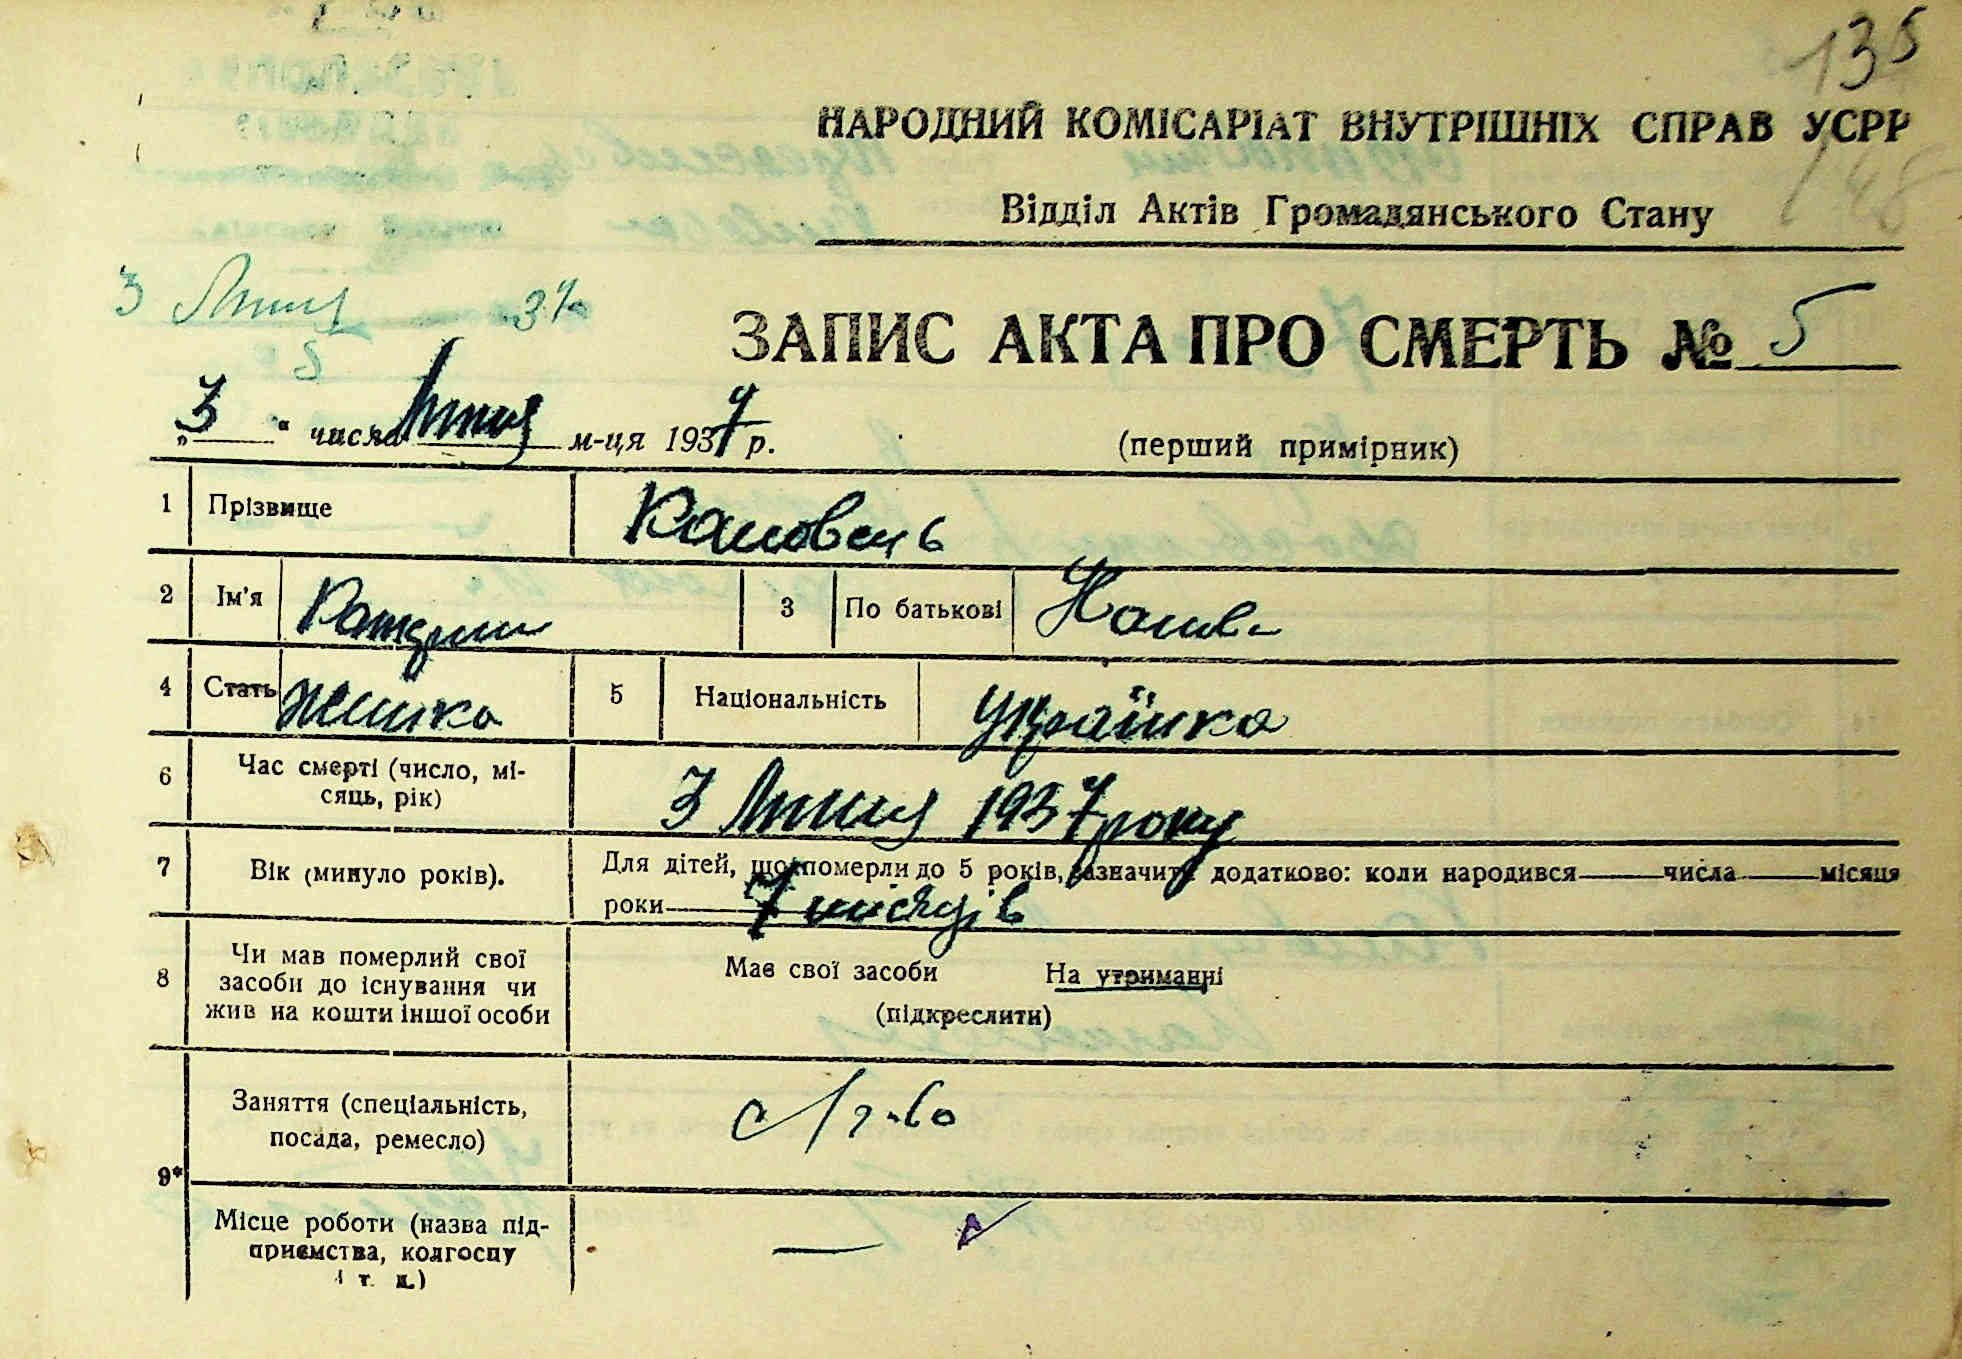 135
148
НАРОДНИЙ КОМІСАРІАТ ВНУТРІШНІХ СПРАВ УСРР
Відділ Актів Громадянського Стану
3 Липня 37
5
ЗАПИС АКТА ПРО СМЕРТЬ № 5
„3“ числа Липня м-ця 1937 р.
(перший примірник)
1 Прізвище
2 Ім'я 3 По батькові
4 Стать Жінка 5 Національність Українка
6 Час смерті (число, мі-
сяць, рік) 3 Липня 1937 року
7 Вік (минуло років). Для дітей, що померли до 5 років, зазначити додатково: коли народився числа місяця
роки 7 місяців
8 Чи мав померлий свої
засоби до існування чи
жив на кошти іншої особи
Має свої засоби На утриманні
(підкреслити)
9* Заняття (спеціальність,
посада, ремесло)
Місце роботи (назва під-
приємства, колгоспу
і т. п.) —